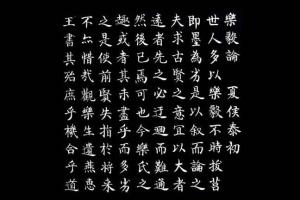 樂毅論　夏侯泰初
世人多以樂毅不時拔莒
即墨為劣是以叙而論之
夫求古賢之意宜以大者
遠者先之必迂迴而難通
然後已焉可也今樂氏之
趣或者其未盡乎而多劣
之是使前賢失指於將来
不亦惜哉觀樂生遺燕惠
王書其殆庶乎機合乎道